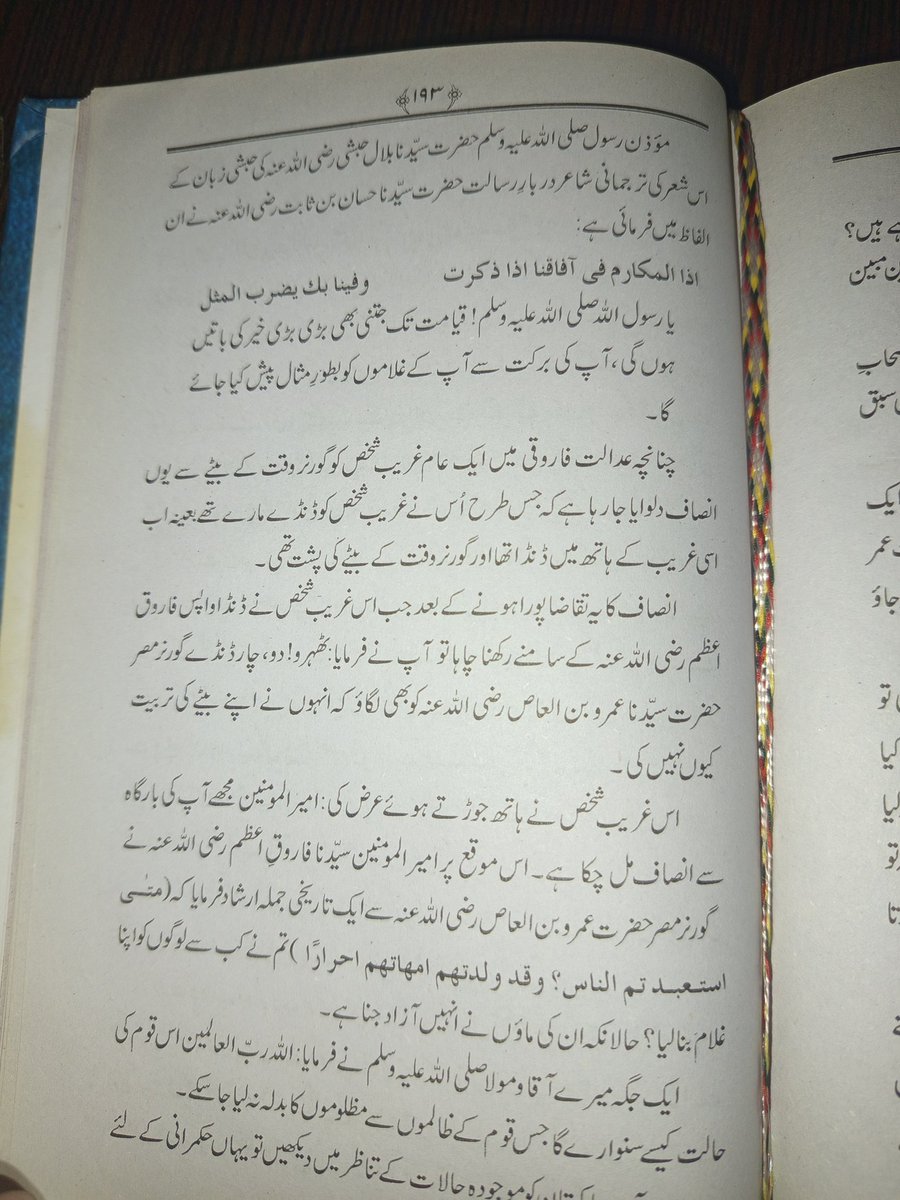 ۱۹۳
مؤذن رسول صلی اللہ علیہ وسلم حضرت سیّدنا بلال حبشی رضی اللہ عنہ کی حبشی زبان کے
اس شعر کی ترجمانی شاعر دربارِ رسالت حضرت سیّدنا حسان بن ثابت رضی اللہ عنہ نے ان
الفاظ میں فرمائی ہے:
اذا المكارم فى آفاقنا اذا ذكرت وفينا بك يضرب المثل
یا رسول اللہ صلی اللہ علیہ وسلم! قیامت تک جتنی بھی بڑی بڑی خیر کی باتیں
ہوں گی، آپ کی برکت سے آپ کے غلاموں کو بطورِ مثال پیش کیا جائے
گا۔
چنانچہ عدالت فاروقی میں ایک عام غریب شخص کو گورنر وقت کے بیٹے سے یوں
انصاف دلوایا جا رہا ہے کہ جس طرح اُس نے غریب شخص کو ڈنڈے مارے تھے بعینہٖ اب
اسی غریب کے ہاتھ میں ڈنڈا تھا اور گورنر وقت کے بیٹے کی پشت تھی۔
انصاف کا یہ تقاضا پورا ہونے کے بعد جب اس غریب شخص نے ڈنڈا واپس فاروق
اعظم رضی اللہ عنہ کے سامنے رکھنا چاہا تو آپ نے فرمایا: ٹھہرو! دو، چار ڈنڈے گورنر مصر
حضرت سیّدنا عمرو بن العاص رضی اللہ عنہ کو بھی لگاؤ کہ انہوں نے اپنے بیٹے کی تربیت
کیوں نہیں کی۔
اس غریب شخص نے ہاتھ جوڑتے ہوئے عرض کی: امیر المومنین مجھے آپ کی بارگاہ
سے انصاف مل چکا ہے۔ اس موقع پر امیر المومنین سیّدنا فاروقِ اعظم رضی اللہ عنہ نے
گورنر مصر حضرت عمرو بن العاص رضی اللہ عنہ سے ایک تاریخی جملہ ارشاد فرمایا کہ (متٰى
استعبد تم الناس؟ وقد ولدتهم امهاتهم احرارًا) تم نے کب سے لوگوں کو اپنا
غلام بنا لیا؟ حالانکہ ان کی ماؤں نے انہیں آزاد جنا ہے۔
ایک جگہ میرے آقا و مولا صلی اللہ علیہ وسلم نے فرمایا: اللہ ربّ العالمین اس قوم کی
حالت کیسے سنوارے گا جس قوم کے ظالموں سے مظلوموں کا بدلہ نہ لیا جا سکے۔
کو موجودہ حالات کے تناظر میں دیکھیں تو یہاں حکمرانی کے لئے
ہے ہیں؟
مبین
سبق
ایک
عمر
جاؤ
تو
کیا
لیا
تو